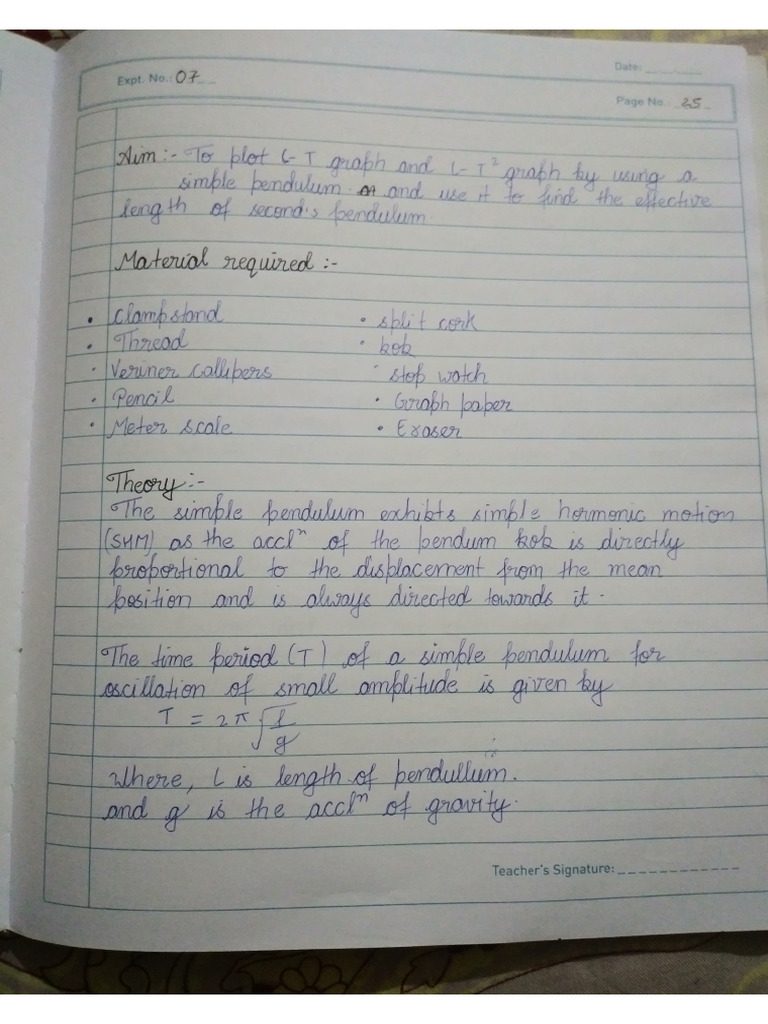 Expt. No.: 07
Date:
Page No.: 25
Aim :- To plot L-T graph and L-T² graph by using a
simple pendulum and use it to find the effective
length of second's pendulum.
Material required :-
• Clampstand
• split cork
• Thread
• kob
• Veriner Callipers
• stop watch
• Pencil
• Graph paper
• Meter scale
• Eraser
Theory :-
The simple pendulum exhibts simple hormonic motion
(SHM) as the acclⁿ of the pendum kob is directly
proportional to the displacement from the mean
position and is always directed towards it.
The time period (T) of a simple pendulum for
oscillation of small amplitude is given by
T = 2π√l/g
Where, L is length of pendullum.
and g is the acclⁿ of gravity.
Teacher's Signature: